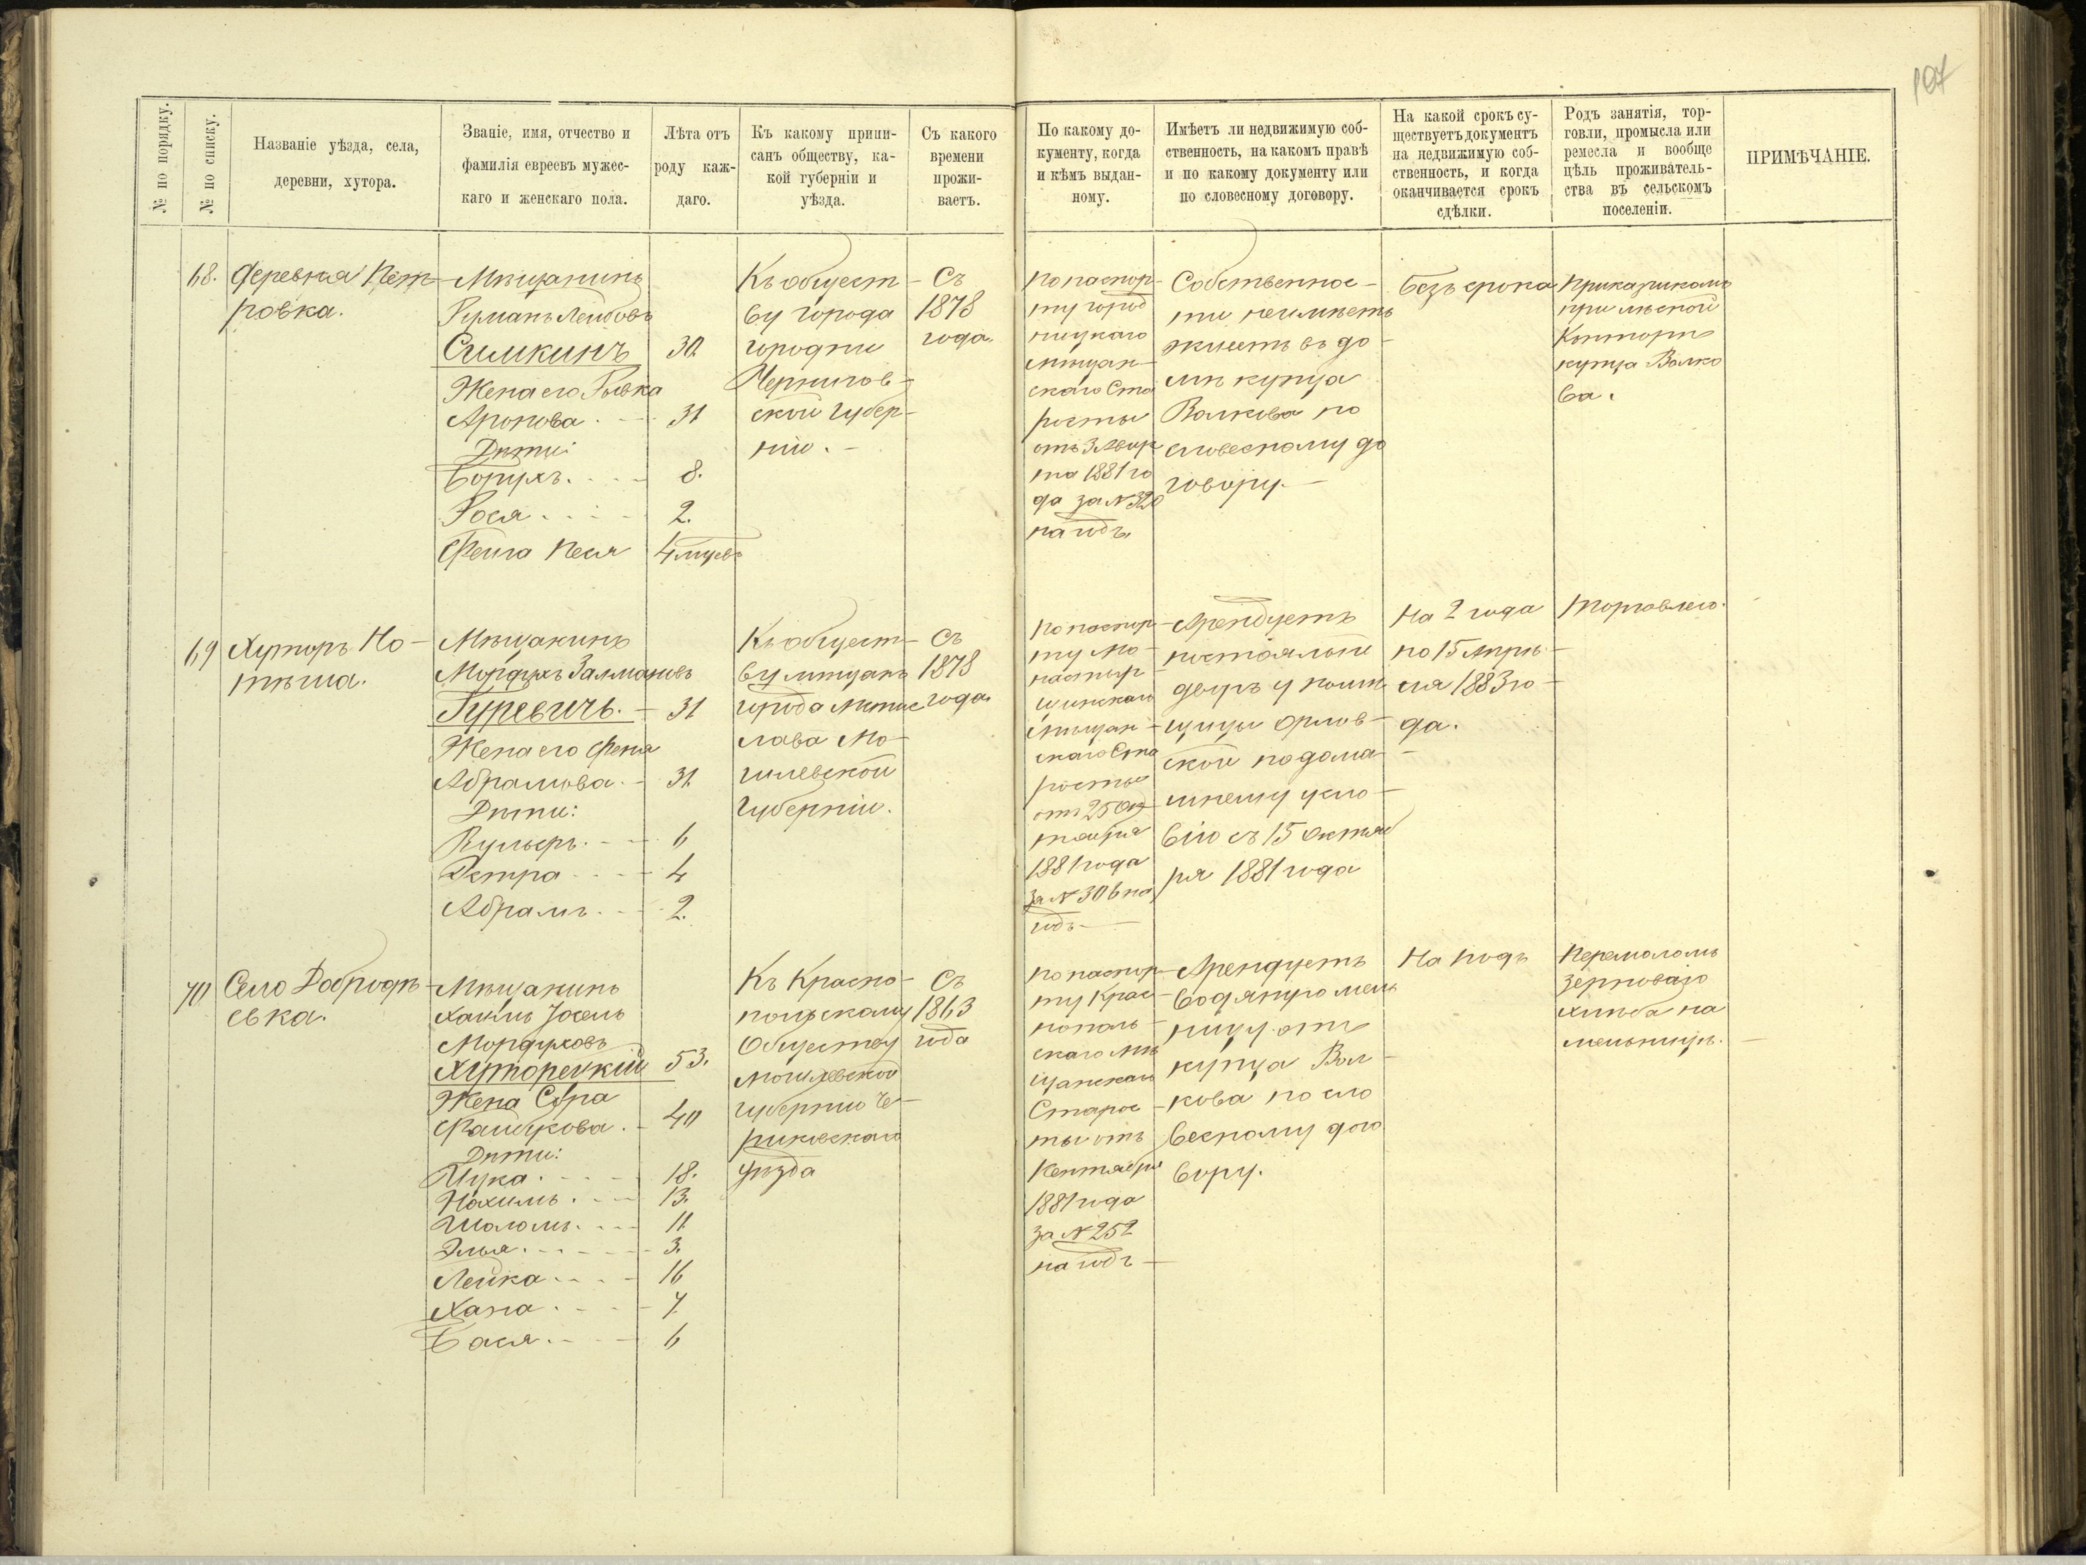 107
№ по порядку.
№ по списку.
Названіе уѣзда, села,
деревни, хутора.
Званіе, имя, отчество и
фамилія евреевъ мужес-
каго и женскаго пола.
Лѣта отъ
роду каж-
даго.
Къ какому припи-
санъ обществу, ка-
кой губерніи и
уѣзда.
Съ какого
времени
прожи-
ваетъ.
По какому до-
кументу, когда
и кѣмъ выдан-
ному.
Имѣетъ ли недвижимую соб-
ственность, на какомъ правѣ
и по какому документу или
по словесному договору.
На какой срокъ су-
ществуетъ документъ
на недвижимую соб-
ственность, и когда
оканчивается срокъ
сдѣлки.
Родъ занятія, тор-
говли, промысла или
ремесла и вообще
цѣль проживатель-
ства въ сельскомъ
поселеніи.
ПРИМѢЧАНІЕ.
68.
Деревня Пет-
ровка.
Мѣщанинъ
Лейбовъ
Симкинъ 30.
Жена его Рывка
Аронова 31
Дѣти:
Борухъ. 8.
Рося 2.
Фейга Песя 4 мѣсяц.
Къ общест-
ву города
Городни
Чернигов-
ской губер-
ніи.
Съ
1878
года.
По паспор-
ту город
ницкаго
мѣщан-
скаго Ста
росты
1881 го
да за №
на годъ
Собственнос-
ти не имѣетъ
живетъ въ до-
мѣ купца
Волкова по
словесному до
говору.
безъ срока
Приказчикомъ
при лѣсной
Конторѣ
купца Волко
ва.
69
Хуторъ
Мѣщанинъ
Мордухъ Залмановъ
Гуревичъ. 31
Жена его Феня
Абрамова 31
Дѣти:
6
Эстра 4
Абрамъ 2.
Къ общест-
ву мѣщанъ
города Мстис
лава Мо-
гилевской
Губерніи.
Съ
1878
года.
По паспор-
ту Мо-
настыр
щинскаго
мѣщан-
скаго Ста
росты
отъ 25 Ок
тября
1881 года
за № 306 на
годъ
Арендуетъ
постоялый
дворъ у помѣ
щицы Орлов-
ской по дома-
шнему усло-
вію съ 15 октяб
ря 1881 года
На 2 года
по 15 Апрѣ-
ля 1883 го-
да.
Торговлею.
70
Село Добродѣ-
евка.
Мѣщанинъ
Хаимъ Іосель
Мордуховъ
Хуторецкій 53.
Жена Сора
40
Дѣти:
18.
Нахимъ 13.
Шоломъ 11
Элья 3.
Лейка 16
Хана 7.
Бася 6
Къ Красно-
польскому
Обществу
Могилевской
губерніи Че-
риковскаго
уѣзда
Съ
1863
года
По паспор-
ту Крас-
нополь-
скаго мѣ
щанскаго
Старос-
ты отъ
1881 года
за № 252
на годъ
Арендуетъ
водяную мель
ницу отъ
купца Вол-
кова по сло
весному дого
вору.
На годъ
Перемоломъ
зерноваго
хлѣба на
мельницѣ.